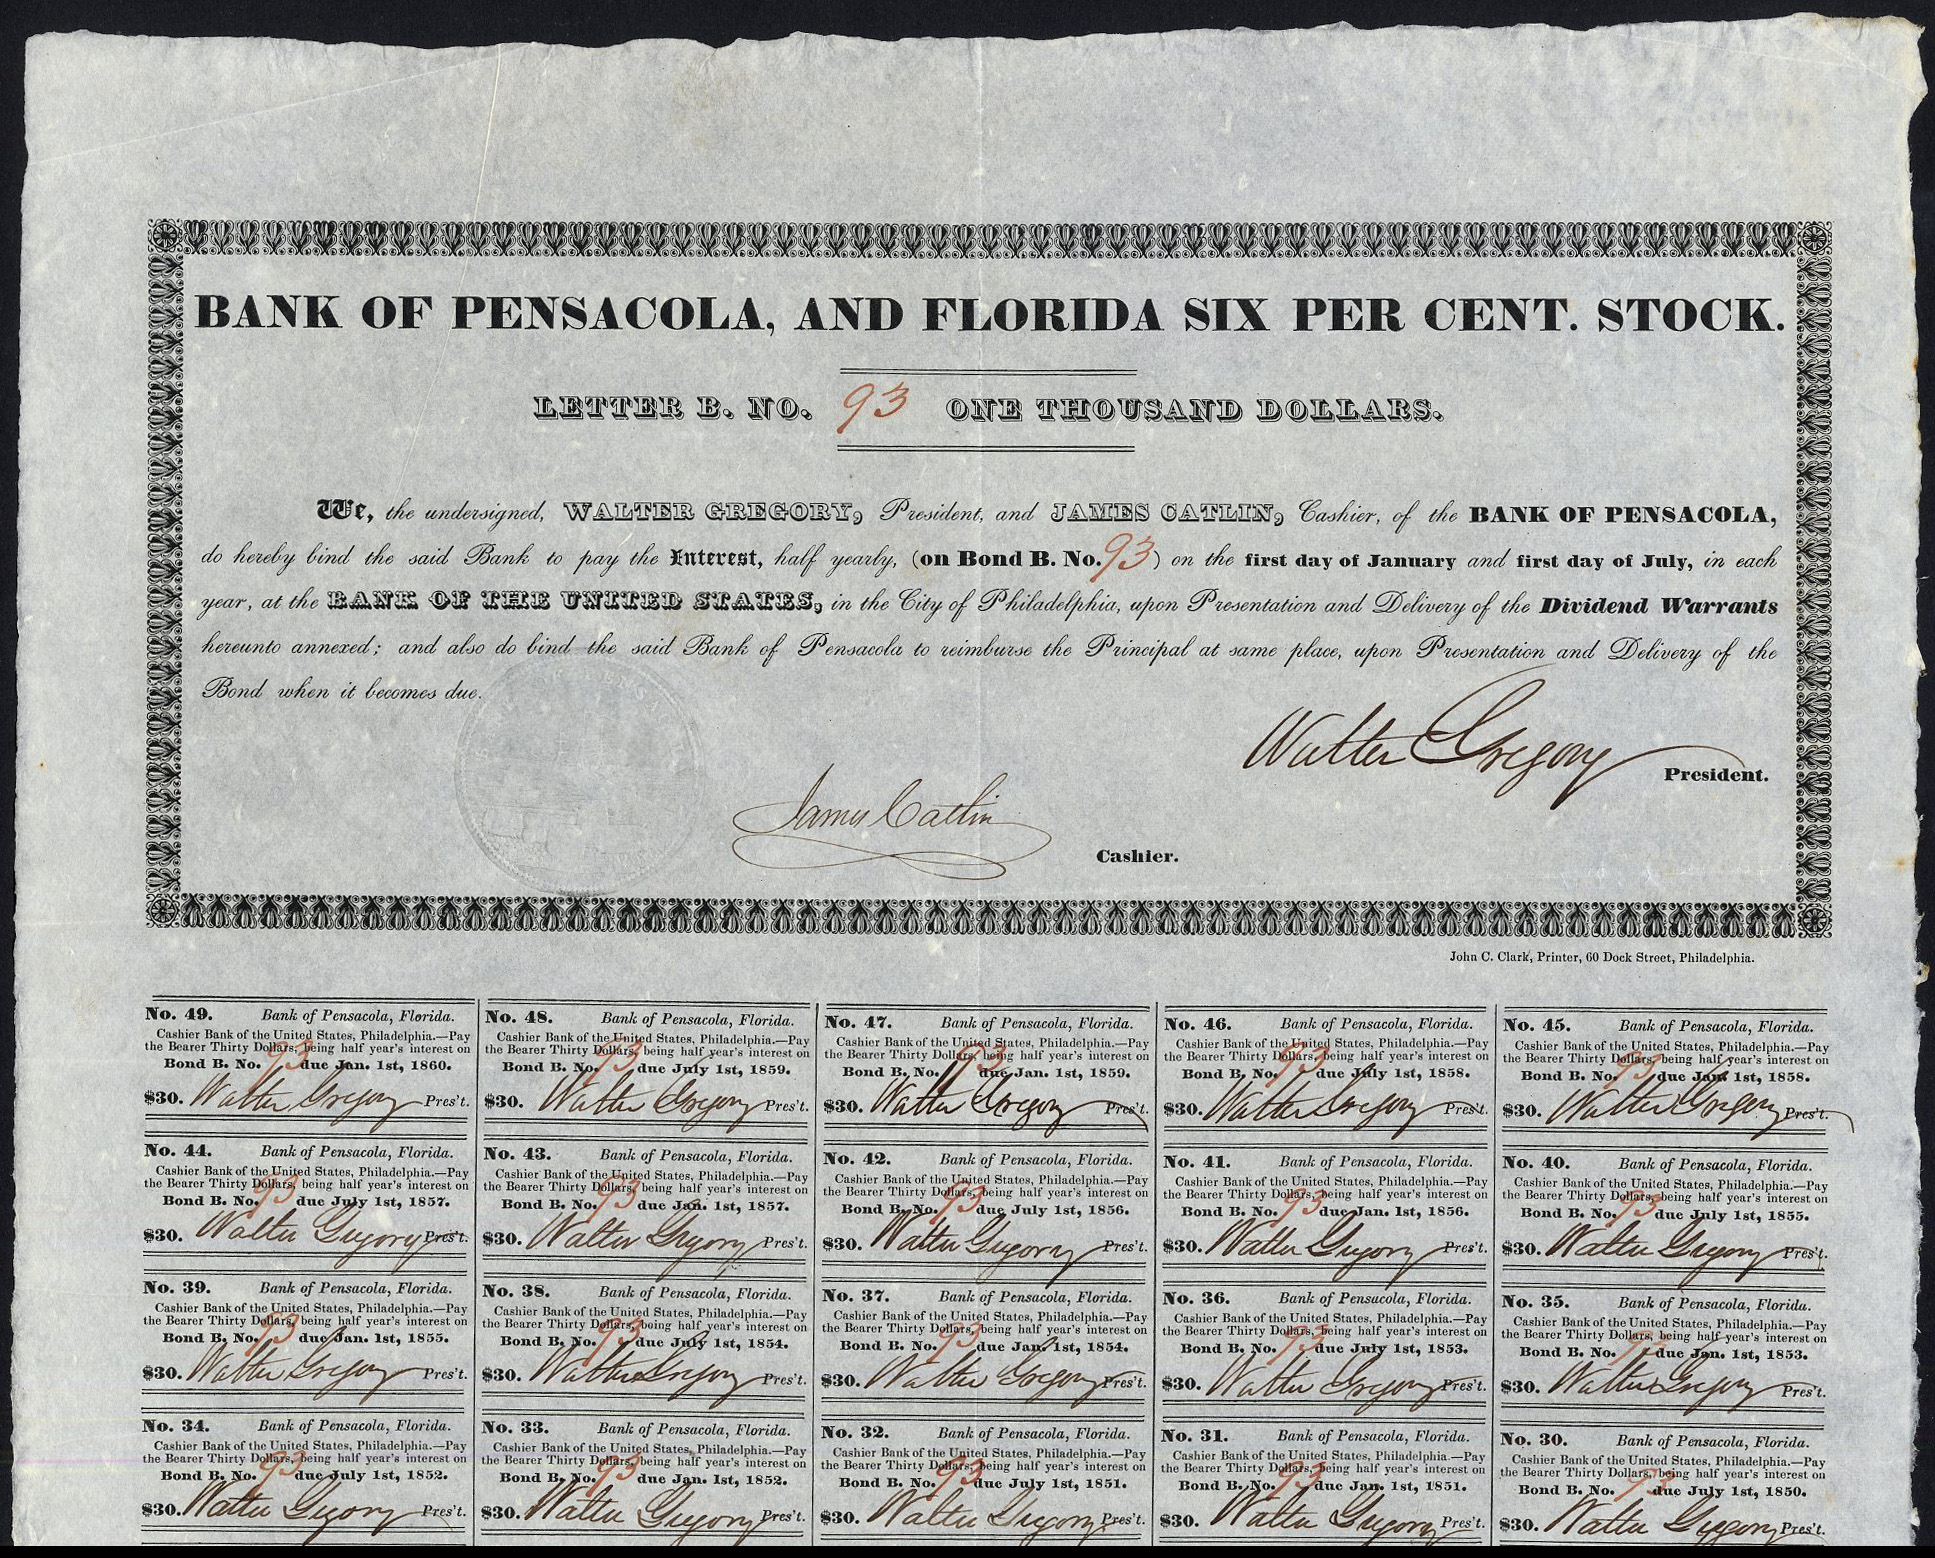 BANK OF PENSACOLA, AND FLORIDA SIX PER CENT. STOCK.
LETTER B. NO. 93 ONE THOUSAND DOLLARS.
We, the undersigned, WALTER GREGORY, President, and JAMES CATLIN, Cashier, of the BANK OF PENSACOLA,
do hereby bind the said Bank to pay the Interest, half yearly, (on Bond B. No. 93) on the first day of January and first day of July, in each
year, at the BANK OF THE UNITED STATES, in the City of Philadelphia, upon Presentation and Delivery of the Dividend Warrants
hereunto annexed; and also do bind the said Bank of Pensacola to reimburse the Principal at same place, upon Presentation and Delivery of the
Bond when it becomes due.
Walter Gregory
President.
James Catlin
Cashier.
John C. Clark, Printer, 60 Dock Street, Philadelphia.
No. 49. Bank of Pensacola, Florida.
Cashier Bank of the United States, Philadelphia.—Pay
the Bearer Thirty Dollars, being half year's interest on
Bond B. No. 93 due Jan. 1st, 1860.
$30. Walter Gregory Pres't.
No. 48. Bank of Pensacola, Florida.
Cashier Bank of the United States, Philadelphia.—Pay
the Bearer Thirty Dollars, being half year's interest on
Bond B. No. 93 due July 1st, 1859.
$30. Walter Gregory Pres't.
No. 47. Bank of Pensacola, Florida.
Cashier Bank of the United States, Philadelphia.—Pay
the Bearer Thirty Dollars, being half year's interest on
Bond B. No. 93 due Jan. 1st, 1859.
$30. Walter Gregory Pres't.
No. 46. Bank of Pensacola, Florida.
Cashier Bank of the United States, Philadelphia.—Pay
the Bearer Thirty Dollars, being half year's interest on
Bond B. No. 93 due July 1st, 1858.
$30. Walter Gregory Pres't.
No. 45. Bank of Pensacola, Florida.
Cashier Bank of the United States, Philadelphia.—Pay
the Bearer Thirty Dollars, being half year's interest on
Bond B. No. 93 due Jan. 1st, 1858.
$30. Walter Gregory Pres't.
No. 44. Bank of Pensacola, Florida.
Cashier Bank of the United States, Philadelphia.—Pay
the Bearer Thirty Dollars, being half year's interest on
Bond B. No. 93 due July 1st, 1857.
$30. Walter Gregory Pres't.
No. 43. Bank of Pensacola, Florida.
Cashier Bank of the United States, Philadelphia.—Pay
the Bearer Thirty Dollars, being half year's interest on
Bond B. No. 93 due Jan. 1st, 1857.
$30. Walter Gregory Pres't.
No. 42. Bank of Pensacola, Florida.
Cashier Bank of the United States, Philadelphia.—Pay
the Bearer Thirty Dollars, being half year's interest on
Bond B. No. 93 due July 1st, 1856.
$30. Walter Gregory Pres't.
No. 41. Bank of Pensacola, Florida.
Cashier Bank of the United States, Philadelphia.—Pay
the Bearer Thirty Dollars, being half year's interest on
Bond B. No. 93 due Jan. 1st, 1856.
$30. Walter Gregory Pres't.
No. 40. Bank of Pensacola, Florida.
Cashier Bank of the United States, Philadelphia.—Pay
the Bearer Thirty Dollars, being half year's interest on
Bond B. No. 93 due July 1st, 1855.
$30. Walter Gregory Pres't.
No. 39. Bank of Pensacola, Florida.
Cashier Bank of the United States, Philadelphia.—Pay
the Bearer Thirty Dollars, being half year's interest on
Bond B. No. 93 due Jan. 1st, 1855.
$30. Walter Gregory Pres't.
No. 38. Bank of Pensacola, Florida.
Cashier Bank of the United States, Philadelphia.—Pay
the Bearer Thirty Dollars, being half year's interest on
Bond B. No. 93 due July 1st, 1854.
$30. Walter Gregory Pres't.
No. 37. Bank of Pensacola, Florida.
Cashier Bank of the United States, Philadelphia.—Pay
the Bearer Thirty Dollars, being half year's interest on
Bond B. No. 93 due Jan. 1st, 1854.
$30. Walter Gregory Pres't.
No. 36. Bank of Pensacola, Florida.
Cashier Bank of the United States, Philadelphia.—Pay
the Bearer Thirty Dollars, being half year's interest on
Bond B. No. 93 due July 1st, 1853.
$30. Walter Gregory Pres't.
No. 35. Bank of Pensacola, Florida.
Cashier Bank of the United States, Philadelphia.—Pay
the Bearer Thirty Dollars, being half year's interest on
Bond B. No. 93 due Jan. 1st, 1853.
$30. Walter Gregory Pres't.
No. 34. Bank of Pensacola, Florida.
Cashier Bank of the United States, Philadelphia.—Pay
the Bearer Thirty Dollars, being half year's interest on
Bond B. No. 93 due July 1st, 1852.
$30. Walter Gregory Pres't.
No. 33. Bank of Pensacola, Florida.
Cashier Bank of the United States, Philadelphia.—Pay
the Bearer Thirty Dollars, being half year's interest on
Bond B. No. 93 due Jan. 1st, 1852.
$30. Walter Gregory Pres't.
No. 32. Bank of Pensacola, Florida.
Cashier Bank of the United States, Philadelphia.—Pay
the Bearer Thirty Dollars, being half year's interest on
Bond B. No. 93 due July 1st, 1851.
$30. Walter Gregory Pres't.
No. 31. Bank of Pensacola, Florida.
Cashier Bank of the United States, Philadelphia.—Pay
the Bearer Thirty Dollars, being half year's interest on
Bond B. No. 93 due Jan. 1st, 1851.
$30. Walter Gregory Pres't.
No. 30. Bank of Pensacola, Florida.
Cashier Bank of the United States, Philadelphia.—Pay
the Bearer Thirty Dollars, being half year's interest on
Bond B. No. 93 due July 1st, 1850.
$30. Walter Gregory Pres't.